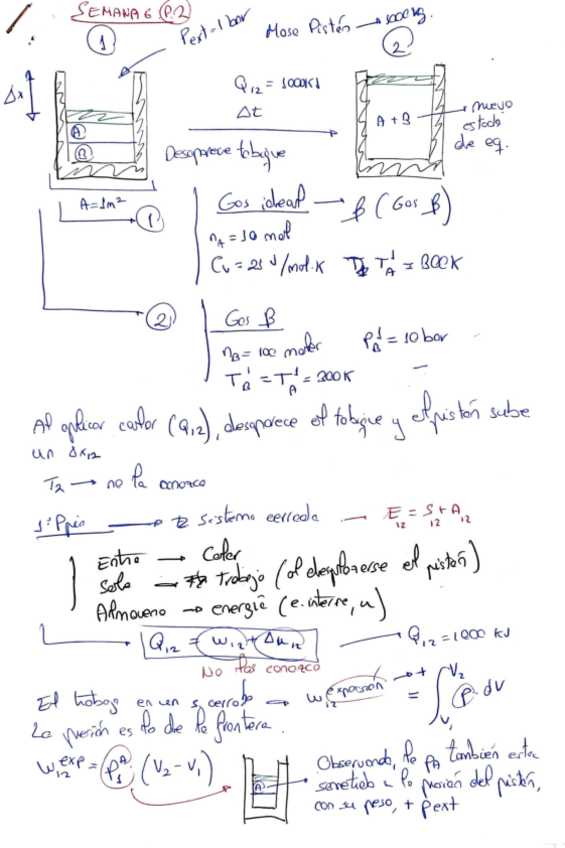 SEMANA 6 P.2
1
Pext = 1 bar
Masa Pistón → 1000 kg.
2
Δx
A
B
Q12 = 1000 KJ
Δt
Desaparece tabique
A + B
nuevo
estado
de eq.
A = 1m²
1
Gas ideal → β (Gas β)
nA = 10 mol
Cv = 21 J/mol·K T¹A = 300K
2
Gas β
nB = 100 moles P¹B = 10 bar
T¹B = T¹A = 300K
Al aplicar calor (Q12), desaparece el tabique y el pistón sube
un Δx12
T2 → no la conozco
1º Ppio → Sistema cerrado → E12 = S12 + A12
Entra → Calor
Sale → trabajo (al desplazarse el pistón)
Almaceno → energía (e. interna, u)
Q12 = W12 + Δu12 → Q12 = 1000 KJ
No las conozco
El trabajo en un s. cerrado → W12 expansión = ∫V1 V2 P · dV
La presión es la de la frontera.
W12 exp = P1A · (V2 - V1)
A
Observando, la PA también está
sometida a la presión del pistón,
con su peso, + Pext